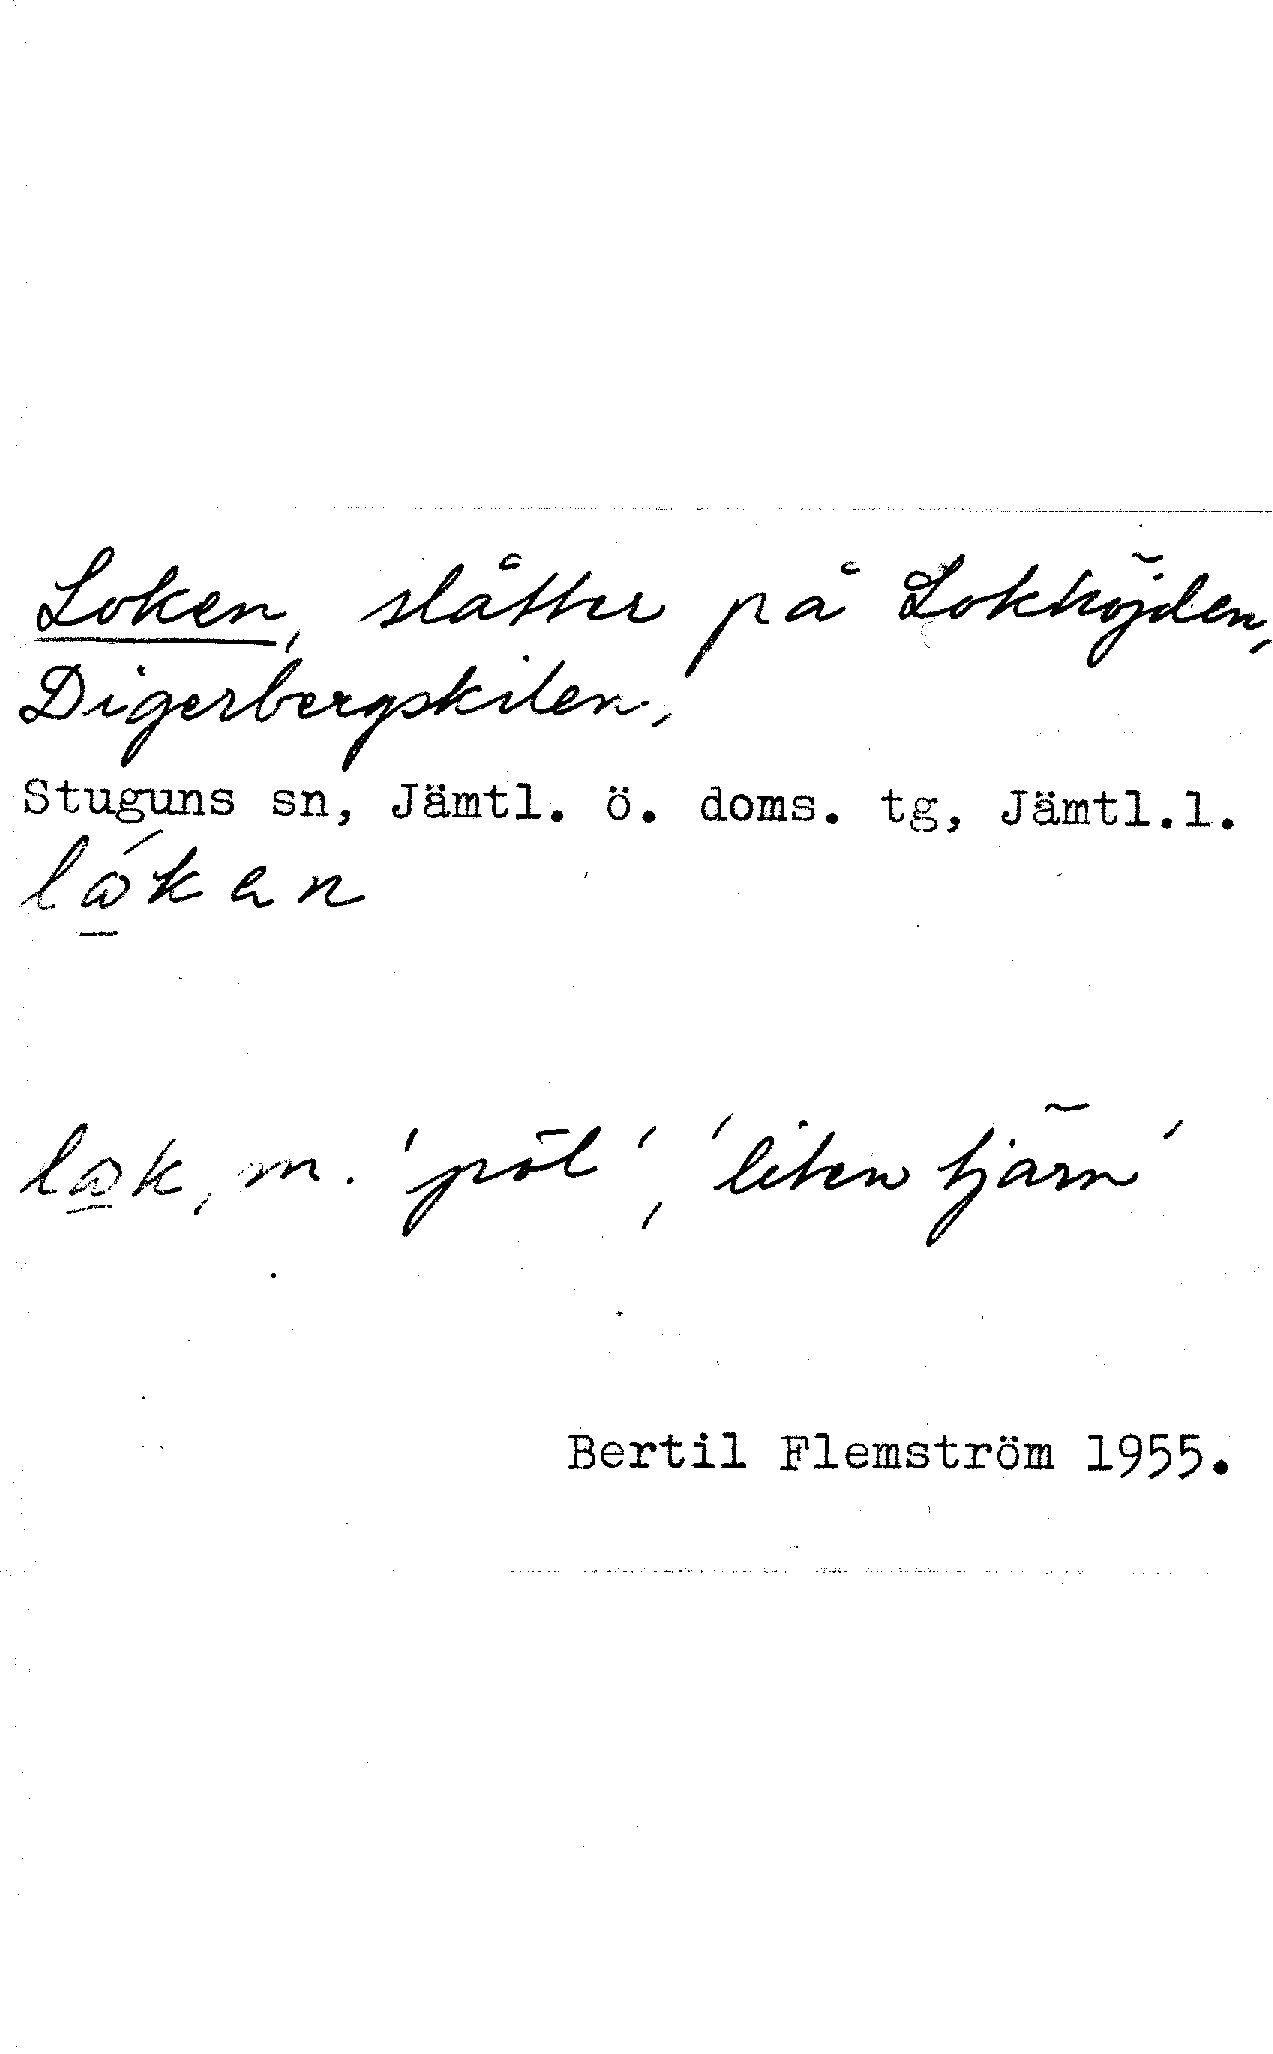 Loken, slåtter på Lokhöjden,
Digerbergskilen,
Stuguns sn, Jämtl. ö. doms. tg, Jämtl.l.
lώ̲kan
lω̲k, m. 'pöl', 'liten tjärn'
Bertil Flemström 1955.